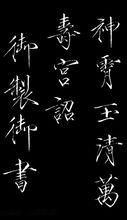 神霄玉清萬
壽宮詔
御製御書